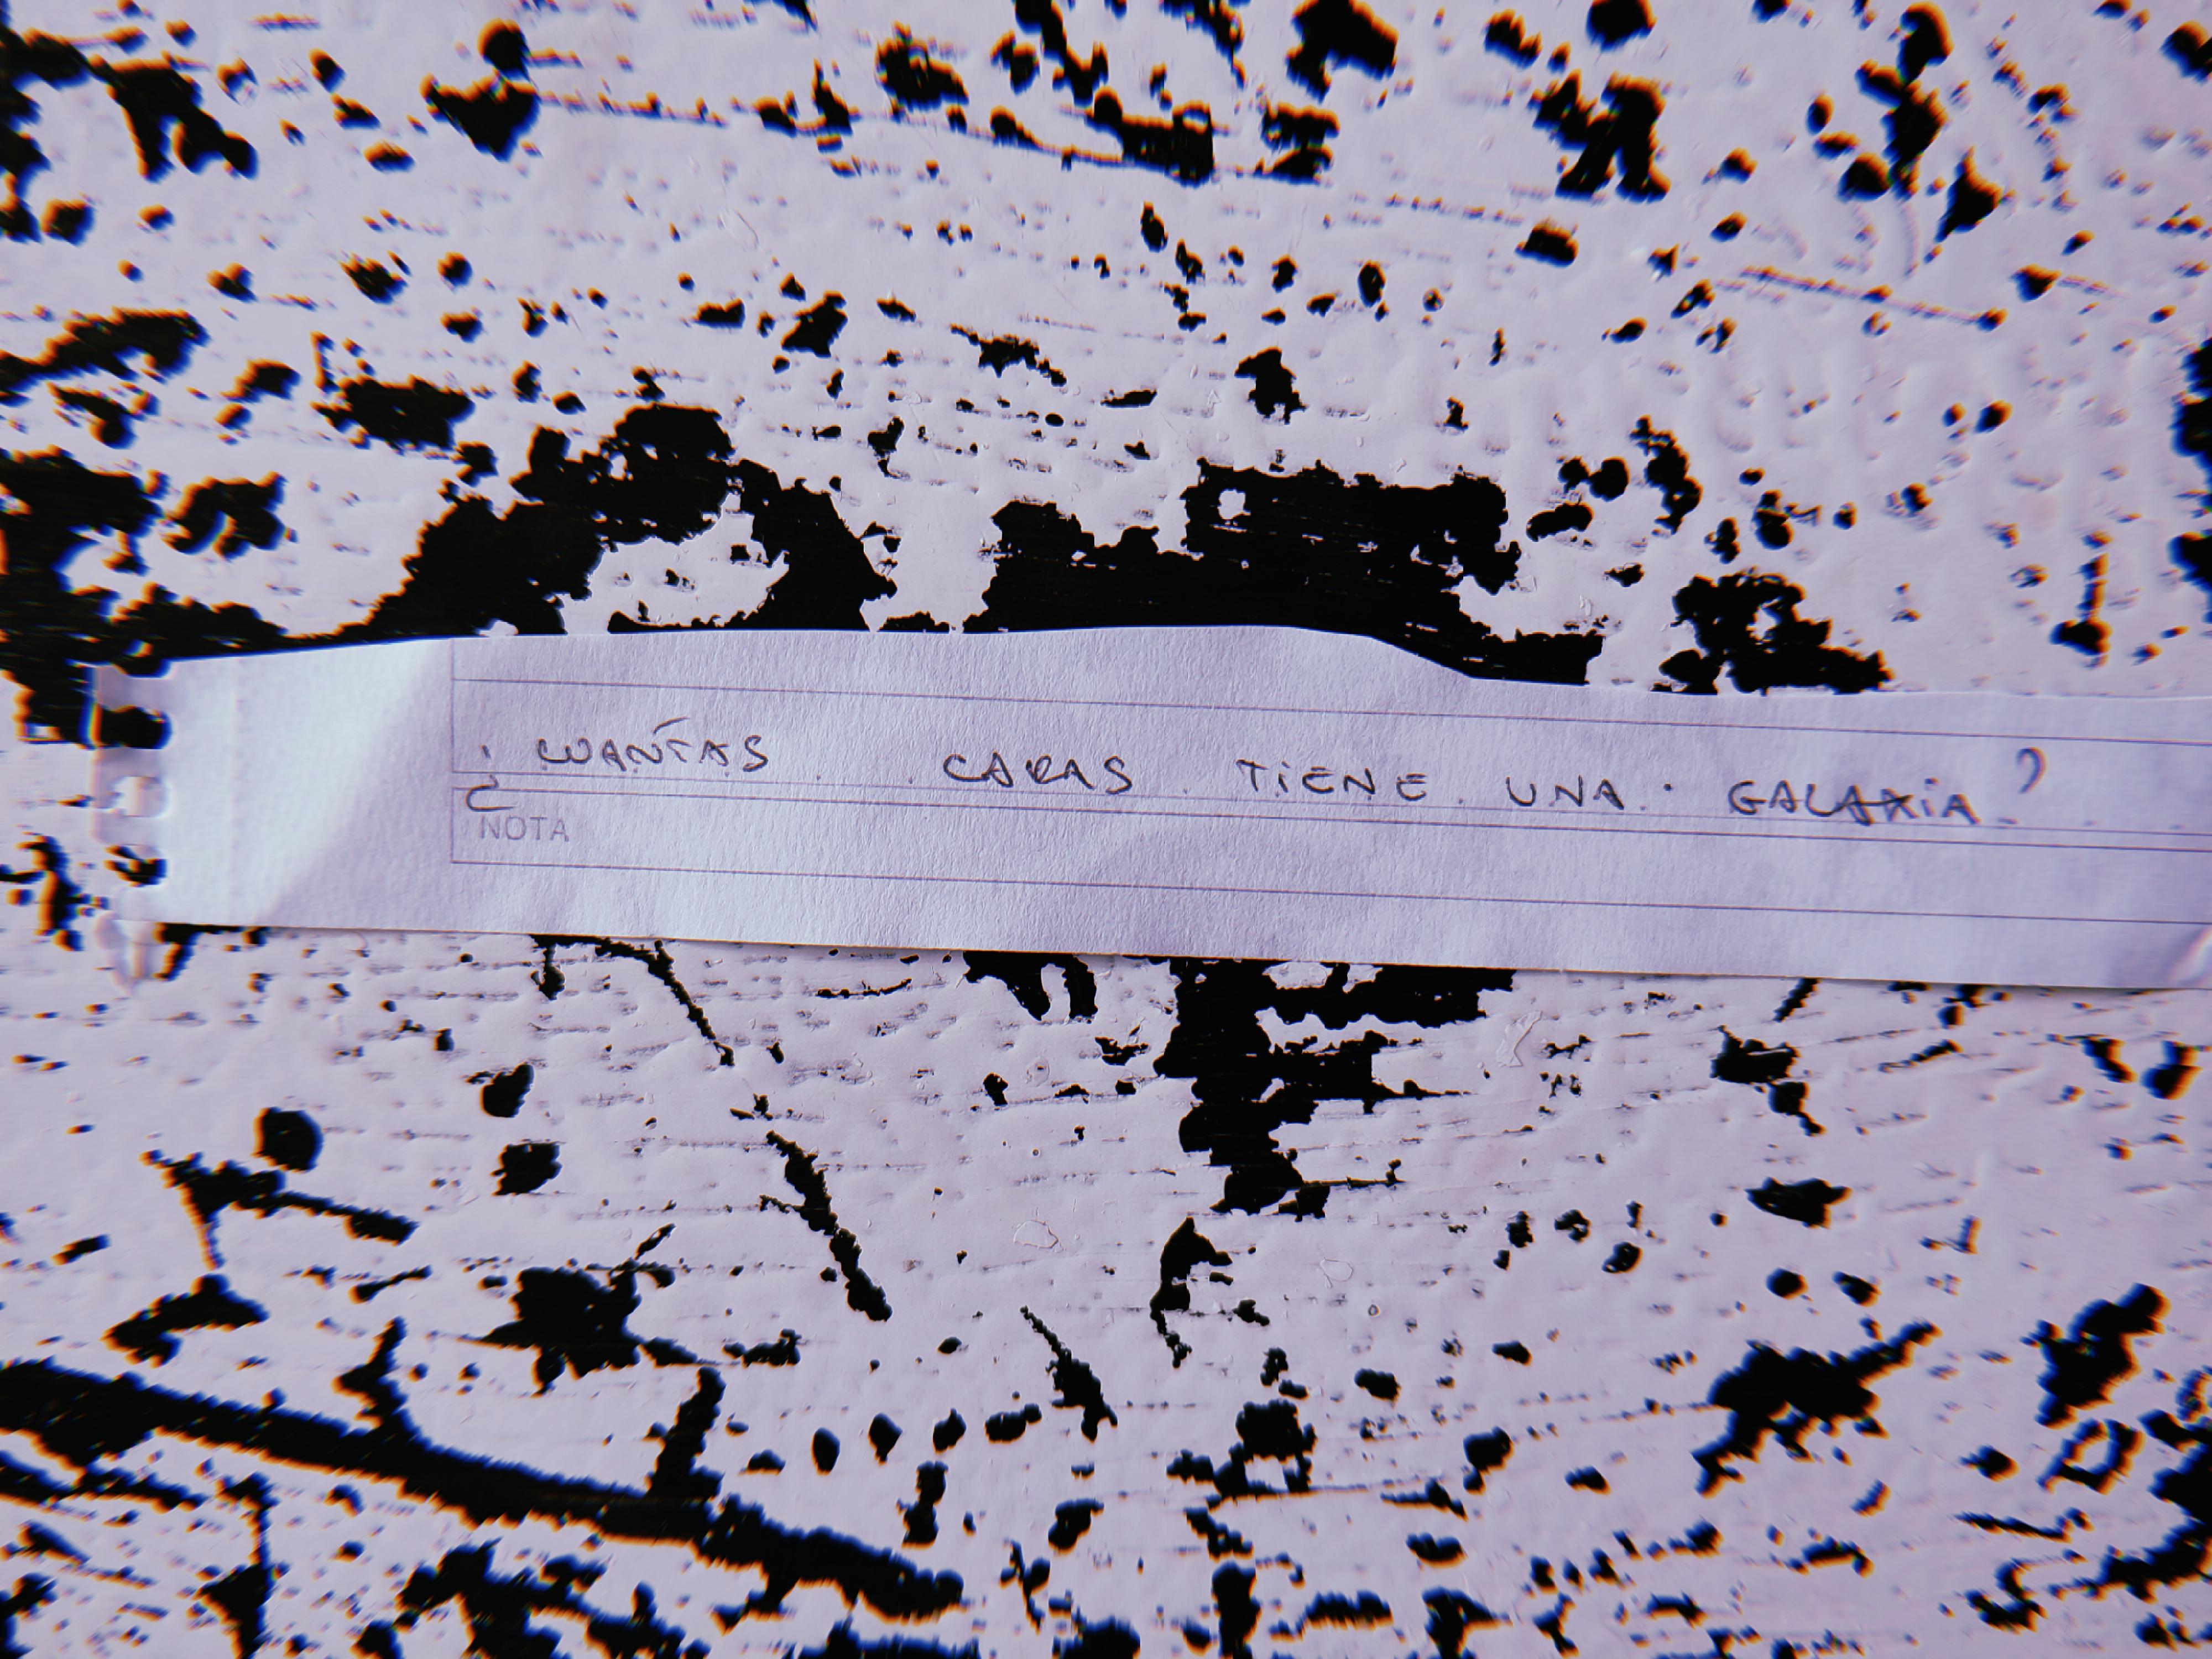 ¿CUANTAS CARAS TiENE UNA GALAXiA?
NOTA